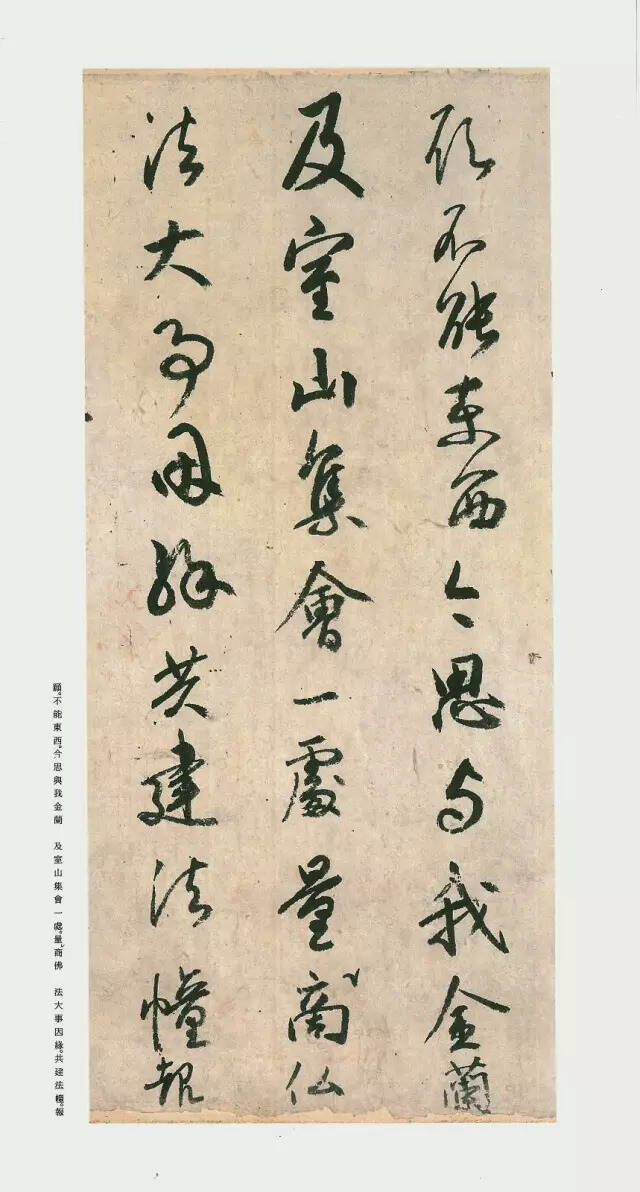 願不能東西今思與我金蘭
及室山集會一處量商仏
法大事因緣共建法幢報
願。不能東西。今思與我金蘭　及室山集會一處。量商佛　法大事因緣。共建法幢。報